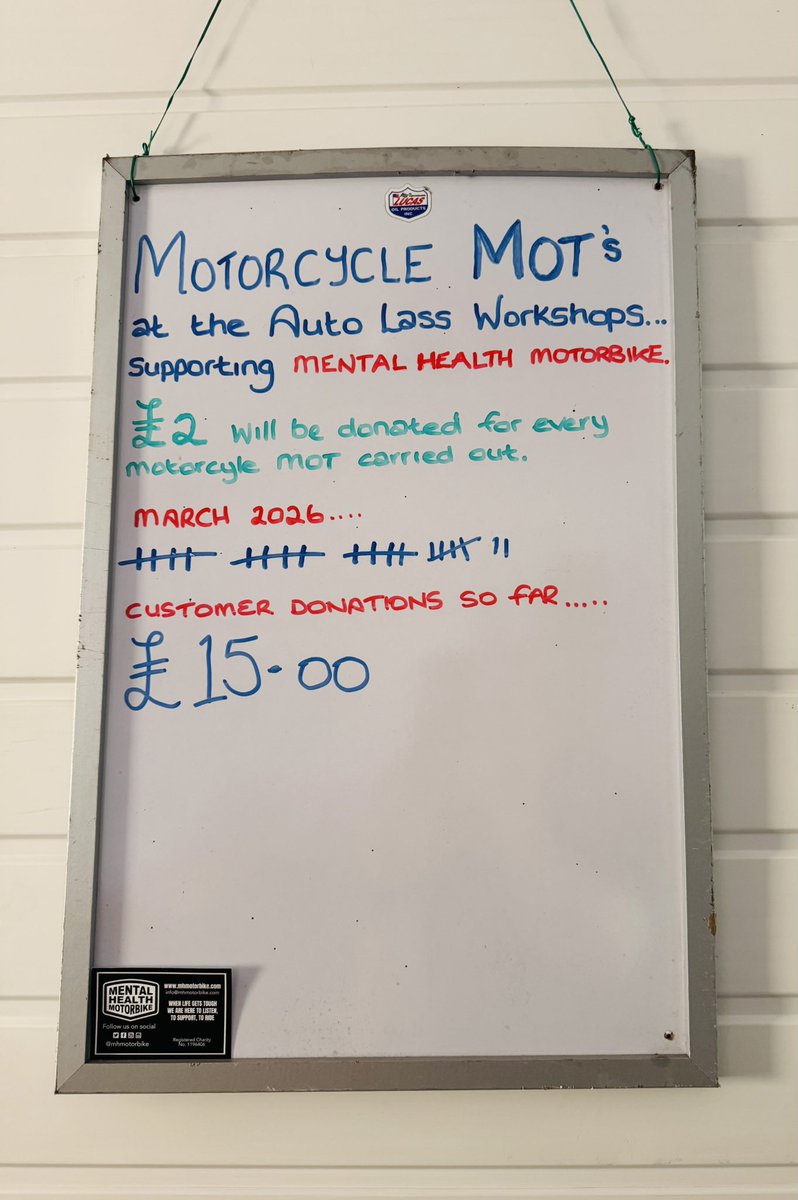 LUCAS
OIL PRODUCTS
INC.
MOTORCYCLE MOT's
at the Auto Lass Workshops...
supporting MENTAL HEALTH MOTORBIKE.
£2 will be donated for every
motorcyle MOT carried out.
MARCH 2026....
CUSTOMER DONATIONS SO FAR.....
£15-00
MENTAL
HEALTH
MOTORBIKE
Follow us on social
@mhmotorbike
www.mhmotorbike.com
info@mhmotorbike.com
WHEN LIFE GETS TOUGH
WE ARE HERE TO LISTEN,
TO SUPPORT, TO RIDE
Registered Charity
No. 1196406